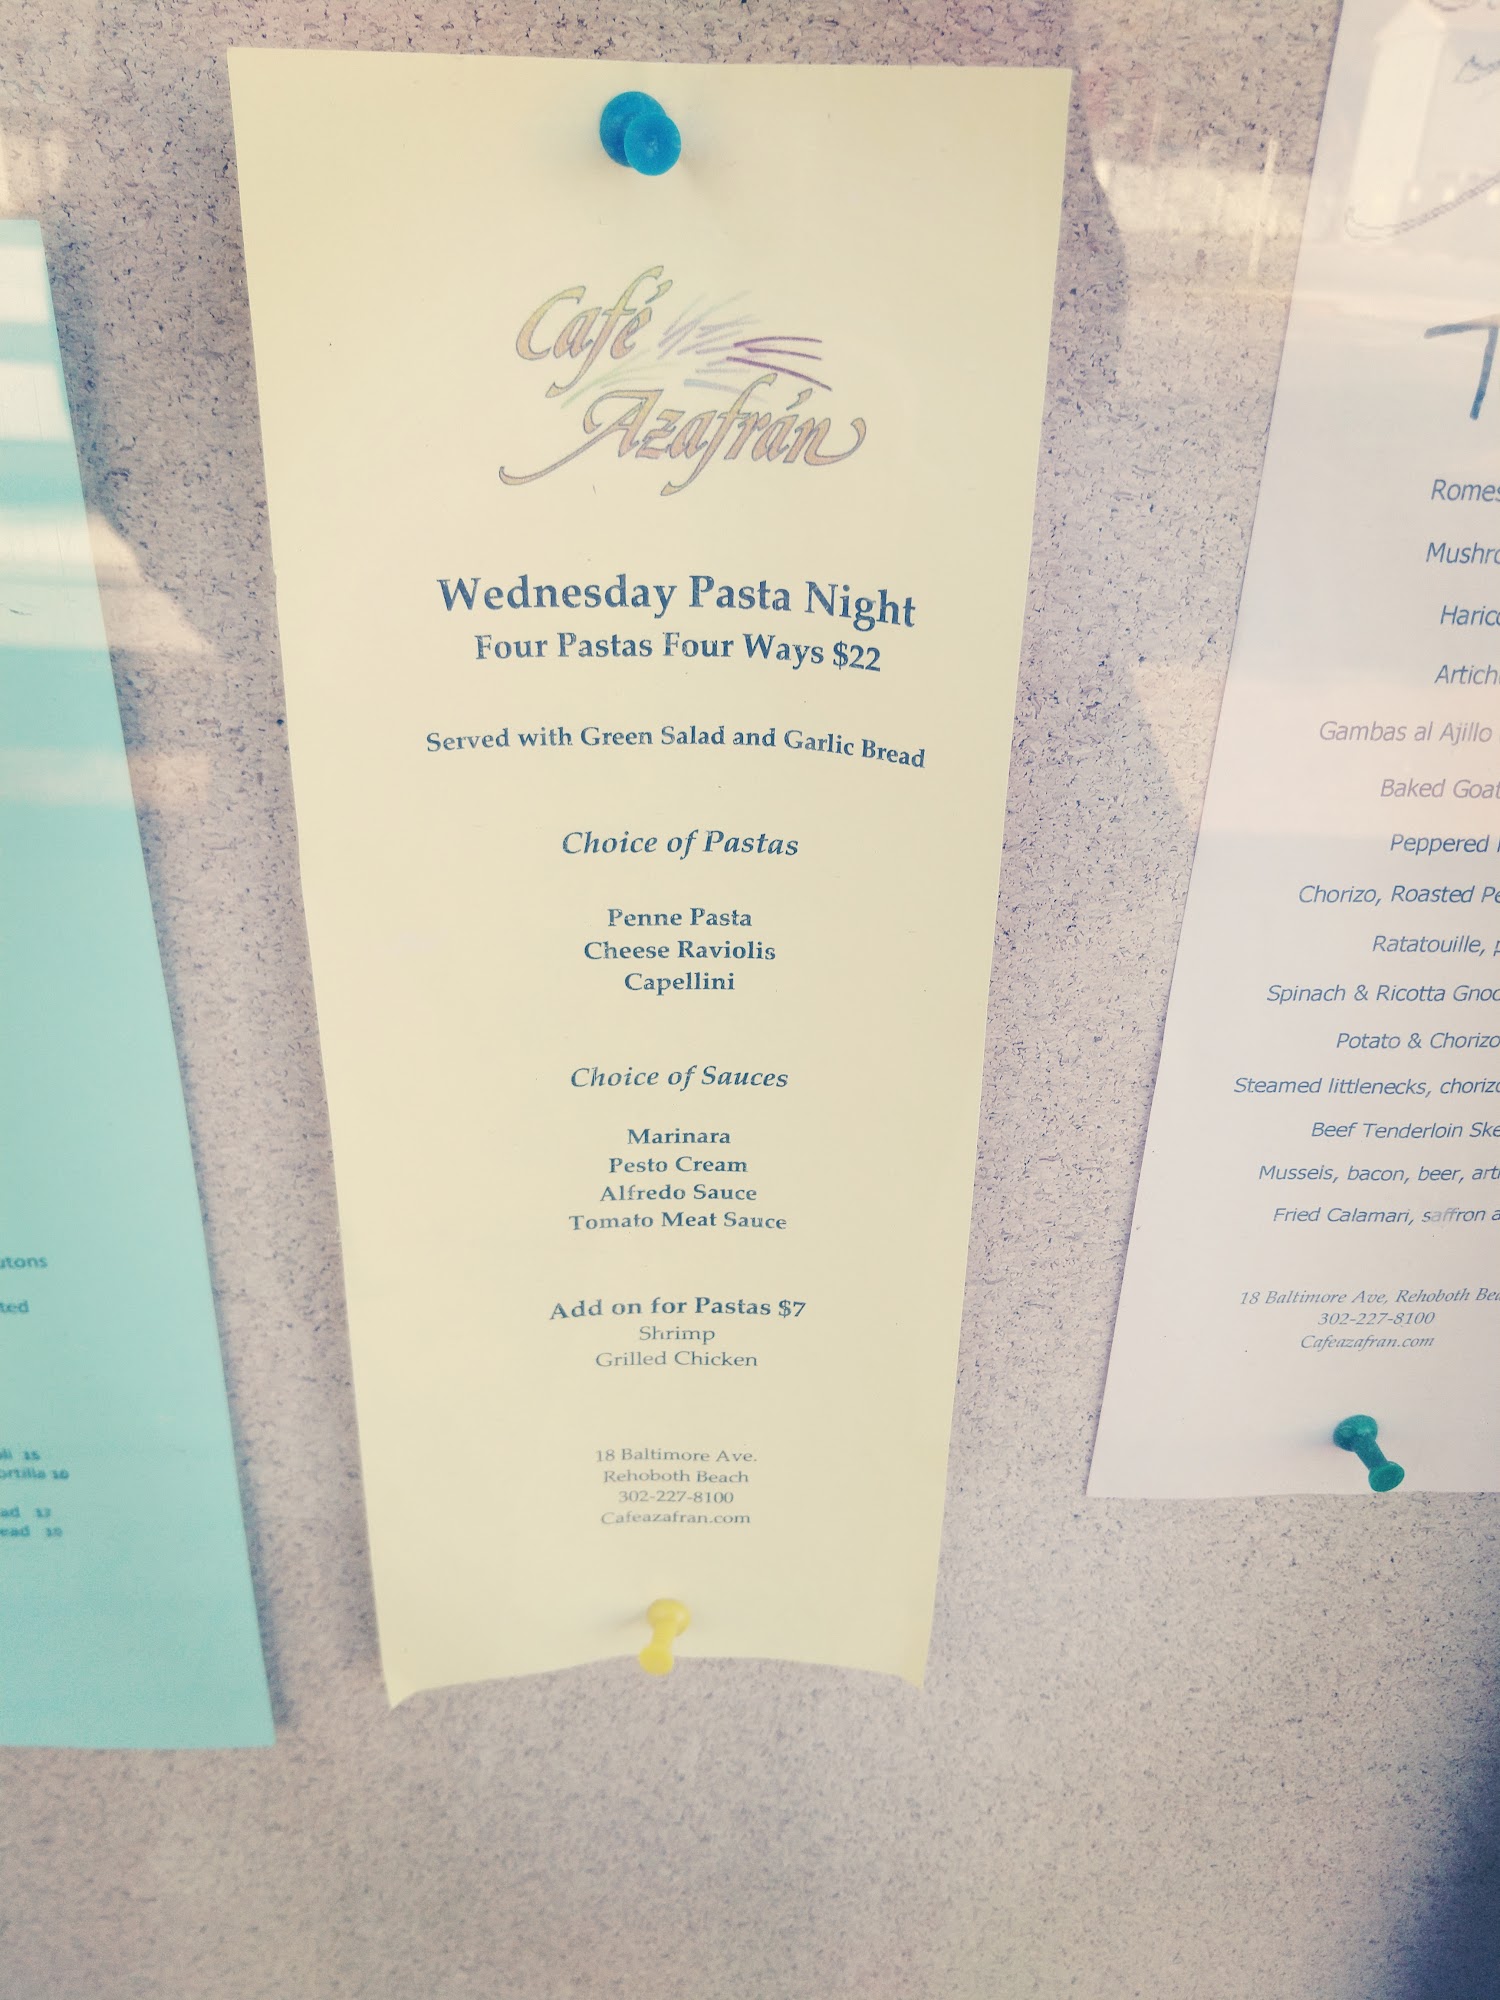 Café
Azafrán
Wednesday Pasta Night
Four Pastas Four Ways $22
Served with Green Salad and Garlic Bread
Choice of Pastas
Penne Pasta
Cheese Raviolis
Capellini
Choice of Sauces
Marinara
Pesto Cream
Alfredo Sauce
Tomato Meat Sauce
Add on for Pastas $7
Shrimp
Grilled Chicken
18 Baltimore Ave.
Rehoboth Beach
302-227-8100
Cafeazafran.com
utons
ted
li 15
ortilla 16
ad
ead
T
Romes
Mushro
Haric
Artich
Gambas al Ajillo
Baked Goat
Peppered
Chorizo, Roasted Pe
Ratatouille,
Spinach & Ricotta Gnoc
Potato & Chorizo
Steamed littlenecks, chorizo
Beef Tenderloin Ske
Mussels, bacon, beer, arti
Fried Calamari, saffron a
18 Baltimore Ave, Rehoboth Bea
302-227-8100
Cafeazafran.com